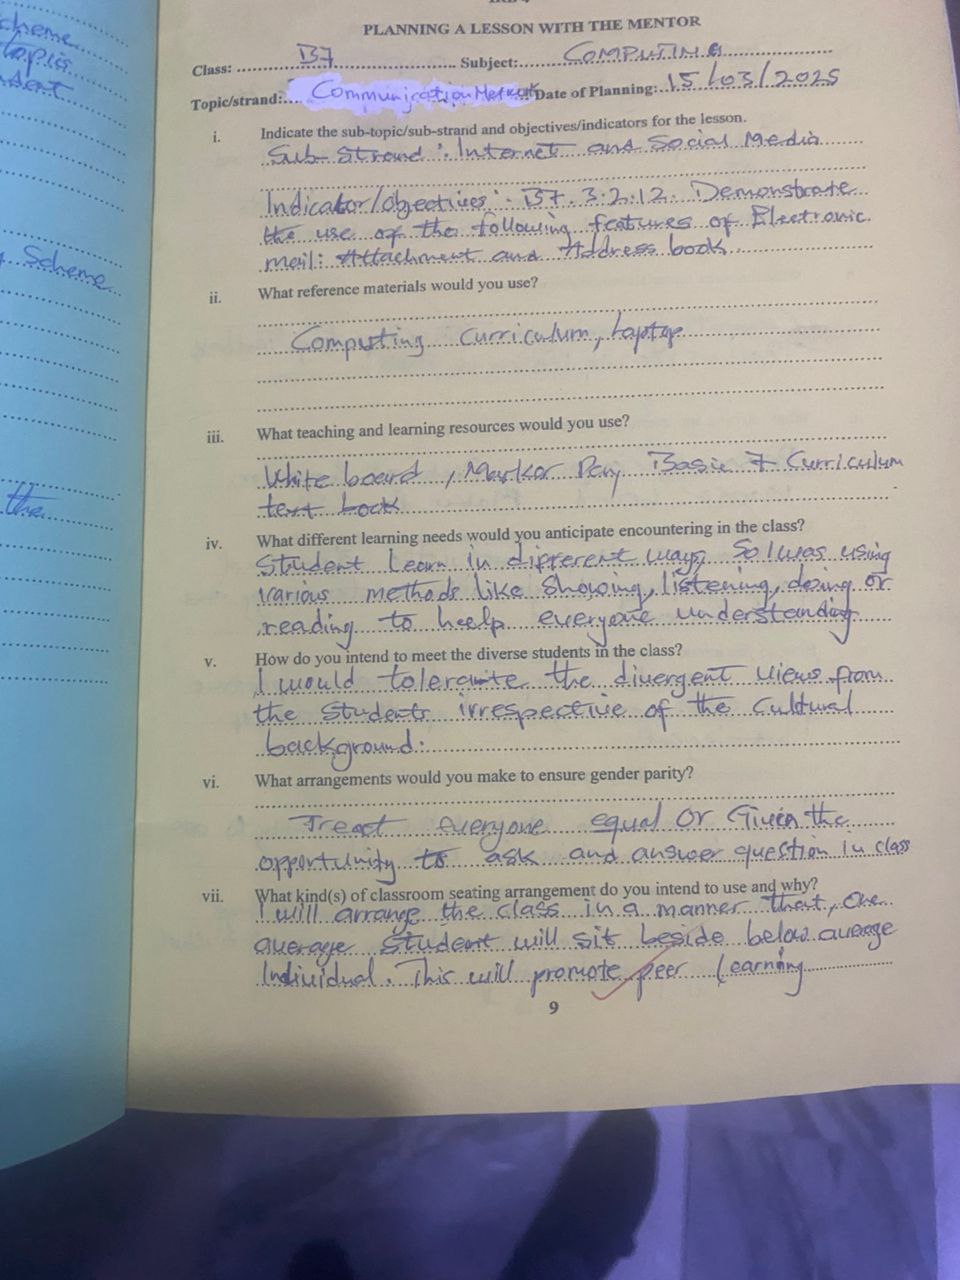 cheme
topic
dent
Scheme
the
PLANNING A LESSON WITH THE MENTOR
Class: B7 Subject: COMPUTING
Topic/strand: Communication Network Date of Planning: 15/03/2025
i. Indicate the sub-topic/sub-strand and objectives/indicators for the lesson.
Sub-Strand: Internet and Social Media
Indicator/objectives: B7.3.2.12. Demonstrate
the use of the following features of Electronic
mail: Attachment and Address book
ii. What reference materials would you use?
Computing Curriculum, Laptop
iii. What teaching and learning resources would you use?
White board, Marker Pen, Basic 7 Curriculum
text book
iv. What different learning needs would you anticipate encountering in the class?
Student Learn in different ways, So I was using
various methods like Showing, listening, doing or
reading to heelp everyone understanding
v. How do you intend to meet the diverse students in the class?
I would tolerante the divergent views from
the students irrespective of the cultural
background.
vi. What arrangements would you make to ensure gender parity?
Treat everyone equal or Given the
opportunity to ask and answer question in class
vii. What kind(s) of classroom seating arrangement do you intend to use and why?
I will arrange the class in a manner that, one
average student will sit beside below average
Individual. This will promote peer learning
9